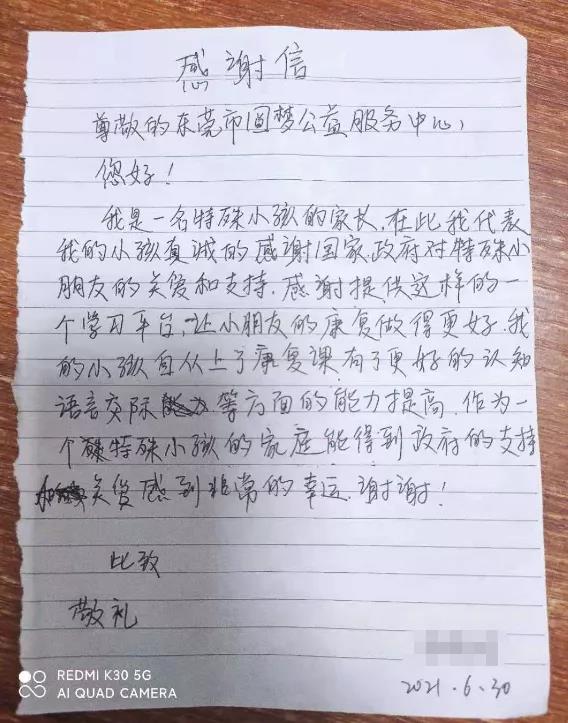 感谢信
尊敬的东莞市圆梦公益服务中心,
您好!
我是一名特殊小孩的家长,在此我代表
我的小孩真诚的感谢国家、政府对特殊小
朋友的关爱和支持,感谢提供这样的一
个学习平台,让小朋友的康复做得更好.我
的小孩自从上了康复课有了更好的认知
语言交际等方面的能力提高.作为一
个特殊小孩的家庭能得到政府的支持
关爱感到非常的幸运.谢谢!
此致
敬礼
2021.6.30
REDMI K30 5G
AI QUAD CAMERA